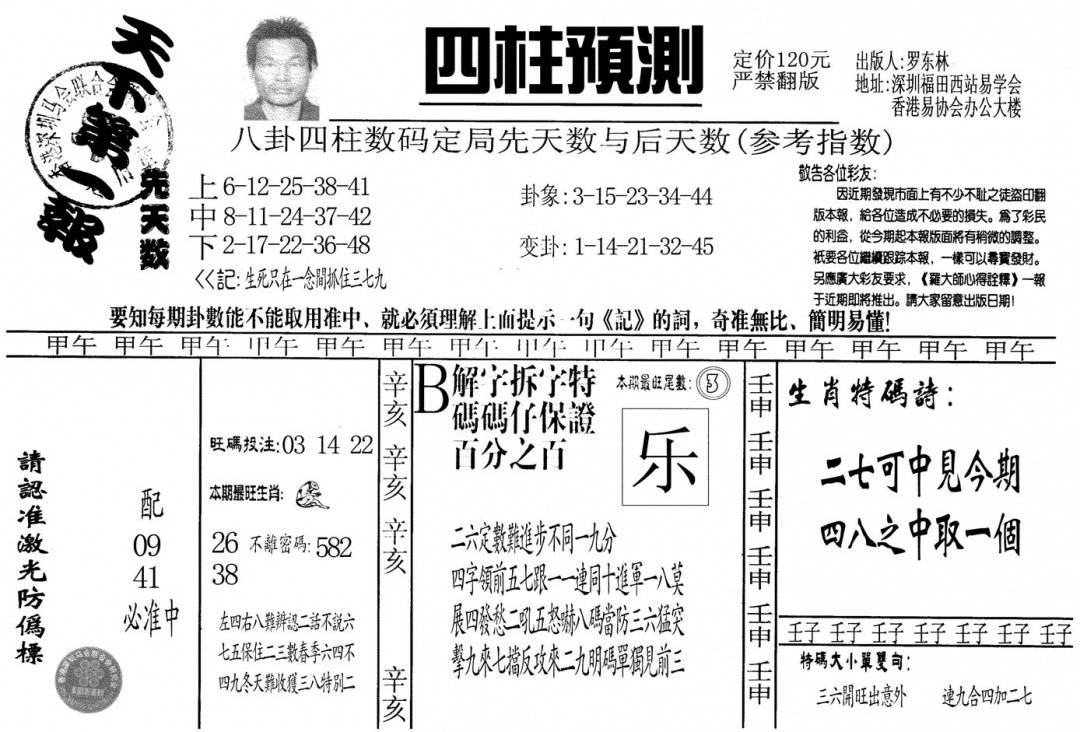 天下第一報
先天数
四柱預測
定价120元
严禁翻版
出版人:罗东林
地址:深圳福田西站易学会
香港易协会办公大楼
八卦四柱数码定局先天数与后天数(参考指数)
上6-12-25-38-41
中8-11-24-37-42
下2-17-22-36-48
卦象:3-15-23-34-44
变卦:1-14-21-32-45
<<記:生死只在一念間抓住三七九
敬告各位彩友:
因近期發現市面上有不少不耻之徒盜印翻
版本報,給各位造成不必要的損失。爲了彩民
的利益,從今期起本報版面將有稍微的調整。
衹要各位繼續跟踪本報,一樣可以尋寶發財。
另應廣大彩友要求,《羅大師心得詮釋》一報
于近期即將推出。請大家留意出版日期!
要知每期卦數能不能取用准中、就必須理解上面提示一句《記》的詞,奇准無比、簡明易懂!
甲午 甲午 甲午 甲午 甲午 甲午 甲午 甲午 甲午 甲午 甲午 甲午 甲午 甲午 甲午
請認准激光防僞標
配
09
41
必准中
旺碼投注:03 14 22
本期最旺生肖:
26 不離密碼:582
38
左四右八難辨認二話不說六
七五保住二三數春季六四不
四九冬天難收獲三八特別二
辛亥
辛亥
辛亥
辛亥
B解字拆字特
碼碼仔保證
百分之百
本期最旺尾數:3
乐
二六定數難進步不同一九分
四字領前五七跟一一連同十進軍一八莫
展四發愁二吼五怒嚇八碼當防三六猛突
擊九來七擋反攻來二九明碼單獨見前三
壬申
壬申
壬申
壬申
壬申
壬申
生肖特碼詩:
二七可中見今期
四八之中取一個
壬子 壬子 壬子 壬子 壬子 壬子 壬子
特碼大小單雙句:
三六開旺出意外 連九合四加二七